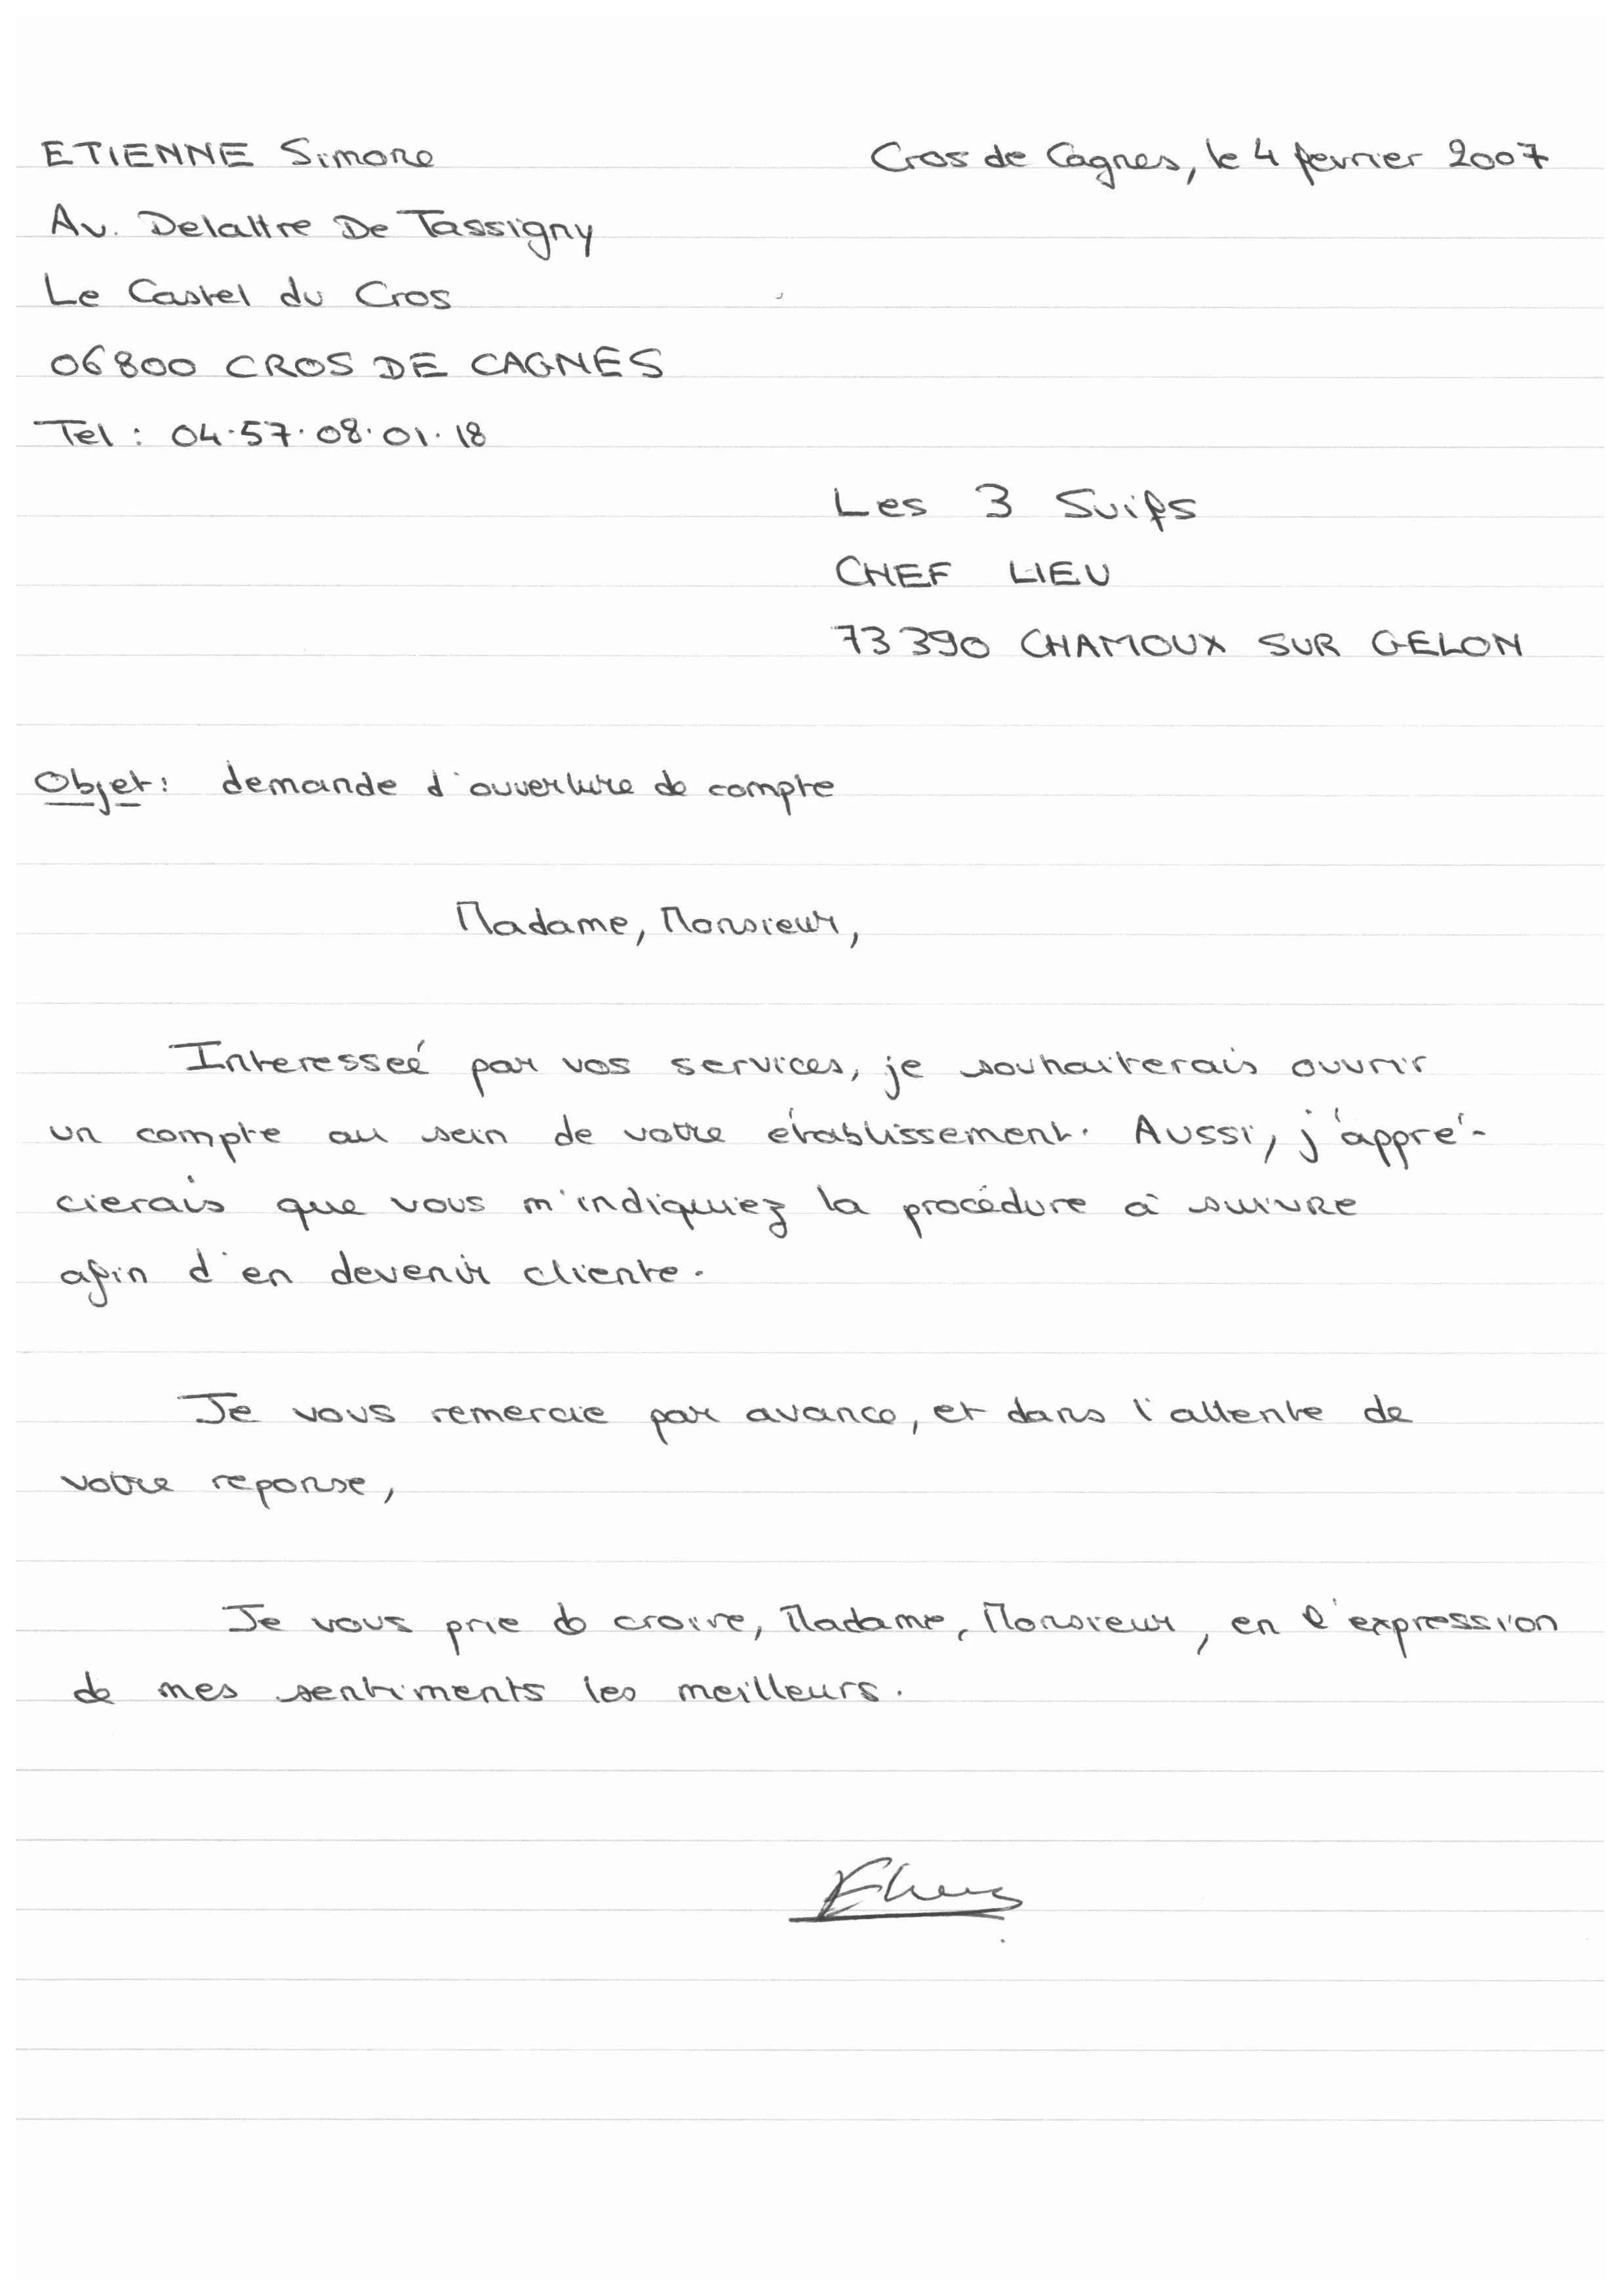 ETIENNE Simone
Cros de Cagnes, le 4 fevrier 2007
Av. Delattre De Tassigny
Le Castel du Cros
06800 CROS DE CAGNES
Tel : 04.57.08.01.18
Les 3 Suifs
CHEF LIEU
73390 CHAMOUX SUR GELON
Objet : demande d'ouverture de compte
Madame, Monsieur,
Interesseé par vos services, je souhaiterais ouvrir
un compte au sein de votre établissement. Aussi, j'appré-
cierais que vous m'indiquiez la procédure à suivre
afin d'en devenir cliente.
Je vous remercie par avance, et dans l'attente de
votre reponse,
Je vous prie de croire, Madame, Monsieur, en l'expression
de mes sentiments les meilleurs.